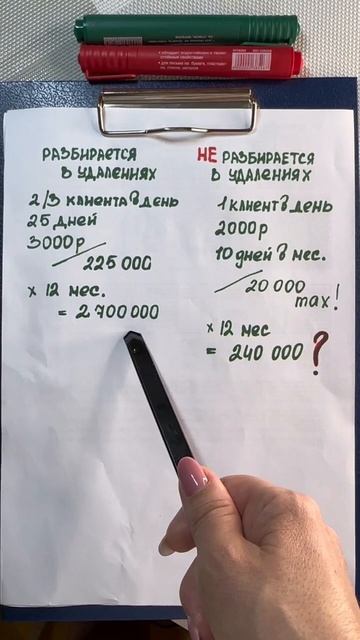 РАЗБИРАЕТСЯ
В УДАЛЕНИЯХ
2/3 клиента в день
25 дней
3000р
225 000
х 12 мес.
= 2 700 000
НЕ РАЗБИРАЕТСЯ
В УДАЛЕНИЯХ
1 клиент в день
2000р
10 дней в мес.
20 000
max!
х 12 мес
= 240 000 ?